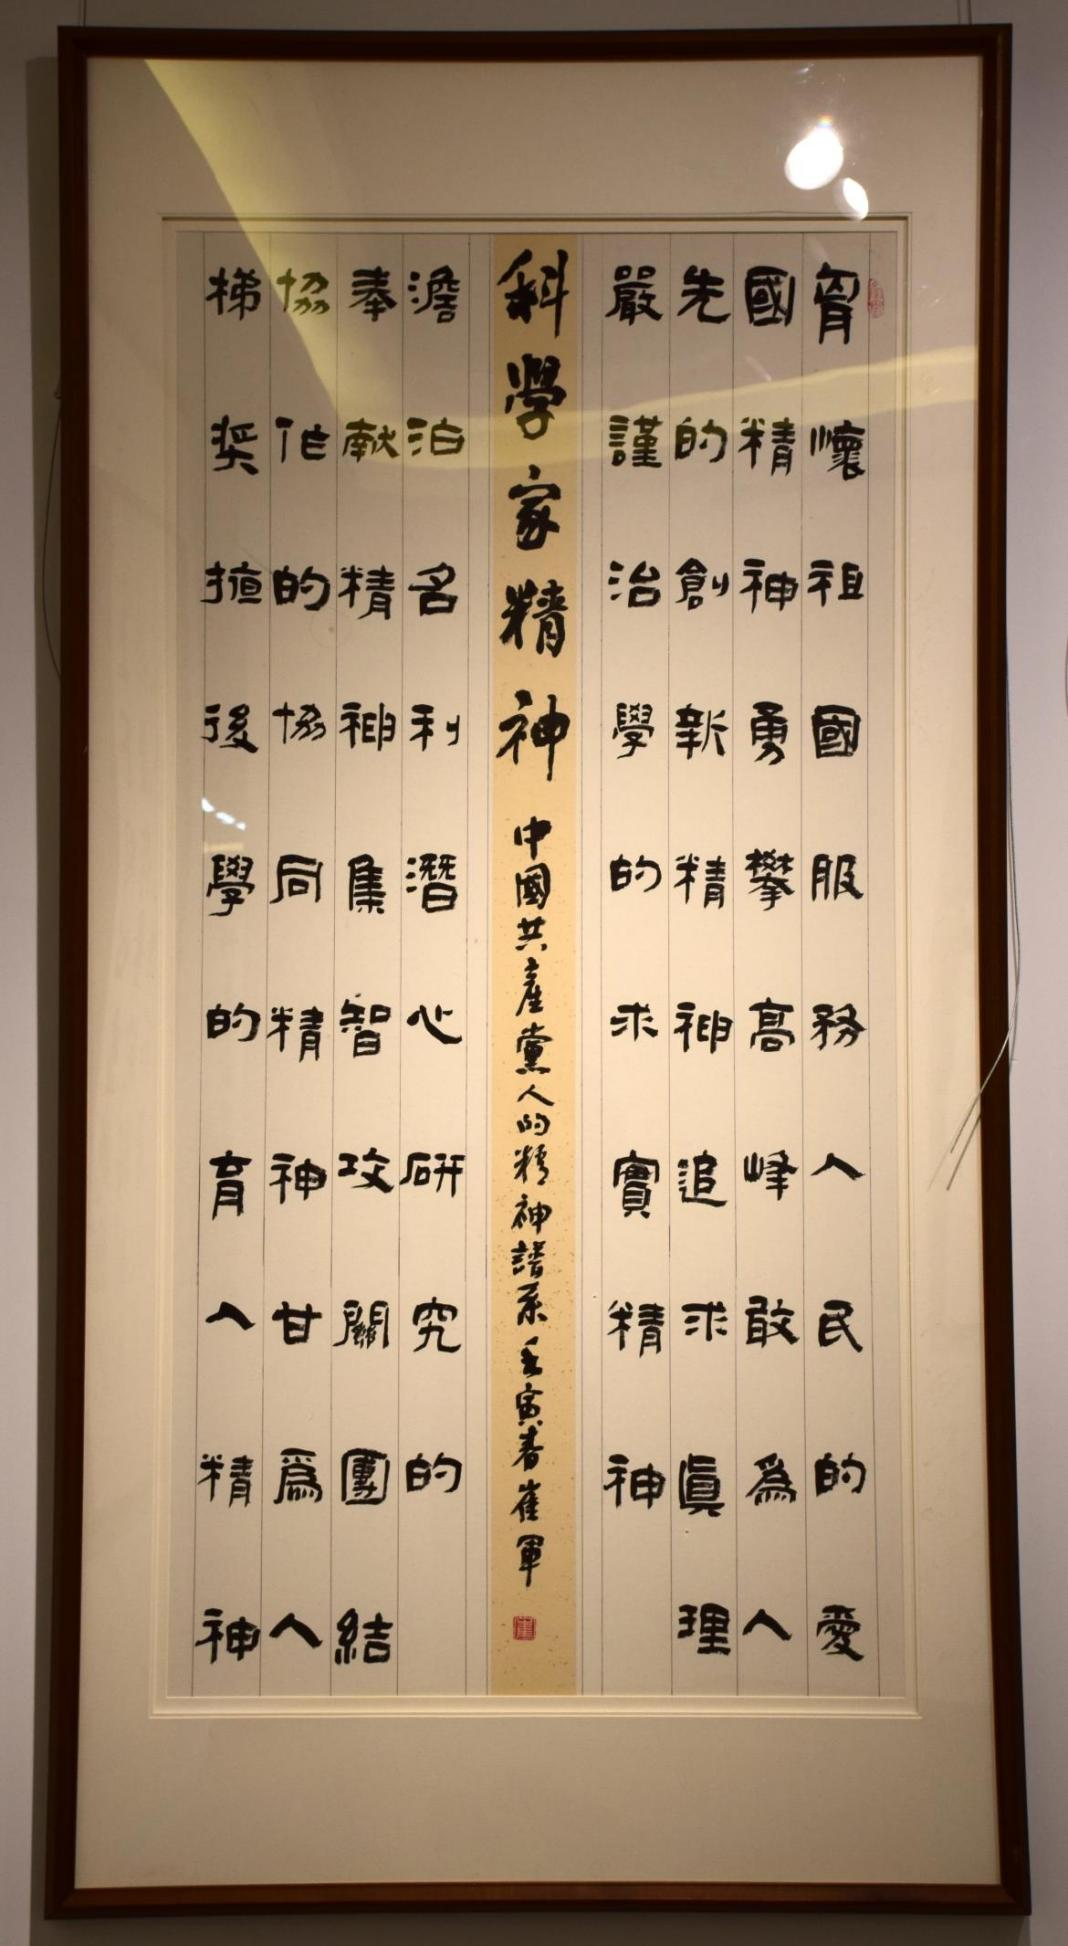 胷懷祖國服務人民的愛
國精神勇攀高峰敢爲人
先的創新精神追求眞理
嚴謹治學的求實精神
科學家精神 中國共產黨人的精神譜系壬寅春崔軍
澹泊名利潛心研究的
奉献精神集智攻關團結
協作的協同精神甘爲人
梯奖掖後學的育人精神